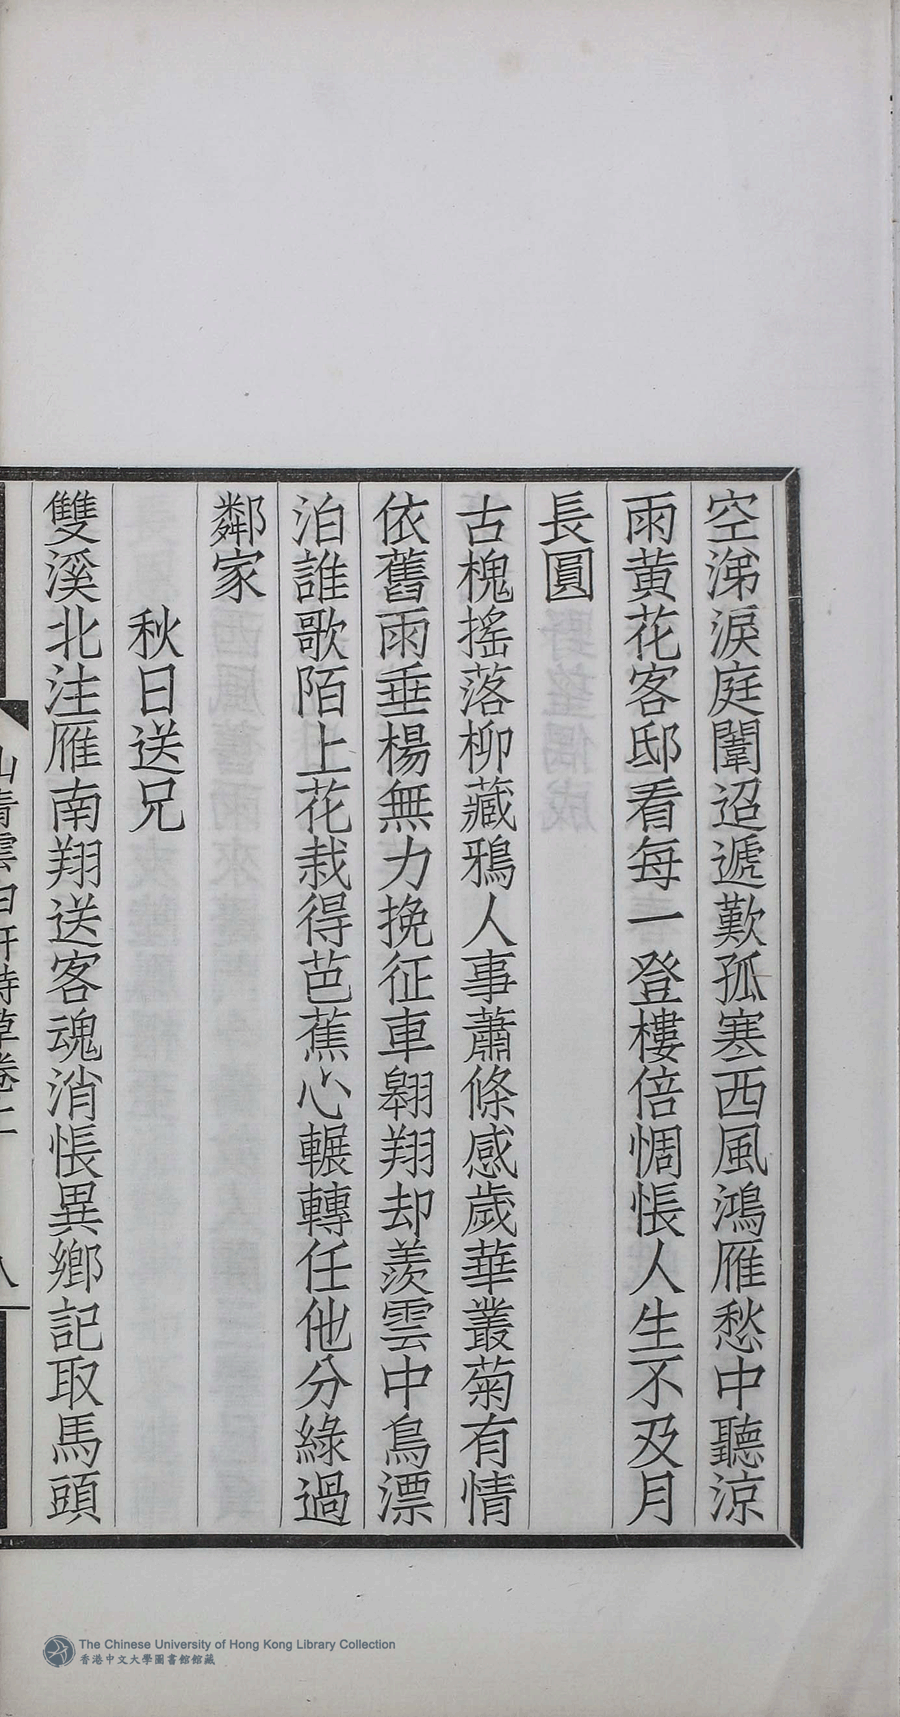 空涕淚庭闈迢遞歎孤寒西風鴻雁愁中聽涼
雨黄花客邸看每一登樓倍惆悵人生不及月
長圓
古槐摇落柳藏鴉人事蕭條感歲華叢菊有情
依舊雨垂楊無力挽征車翱翔却羨雲中鳥漂
泊誰歌陌上花栽得芭蕉心輾轉任他分綠過
鄰家
秋日送兄
雙溪北注雁南翔送客魂消悵異鄉記取馬頭
山青雲白軒詩草卷上
八
The Chinese University of Hong Kong Library Collection
香港中文大學圖書館館藏